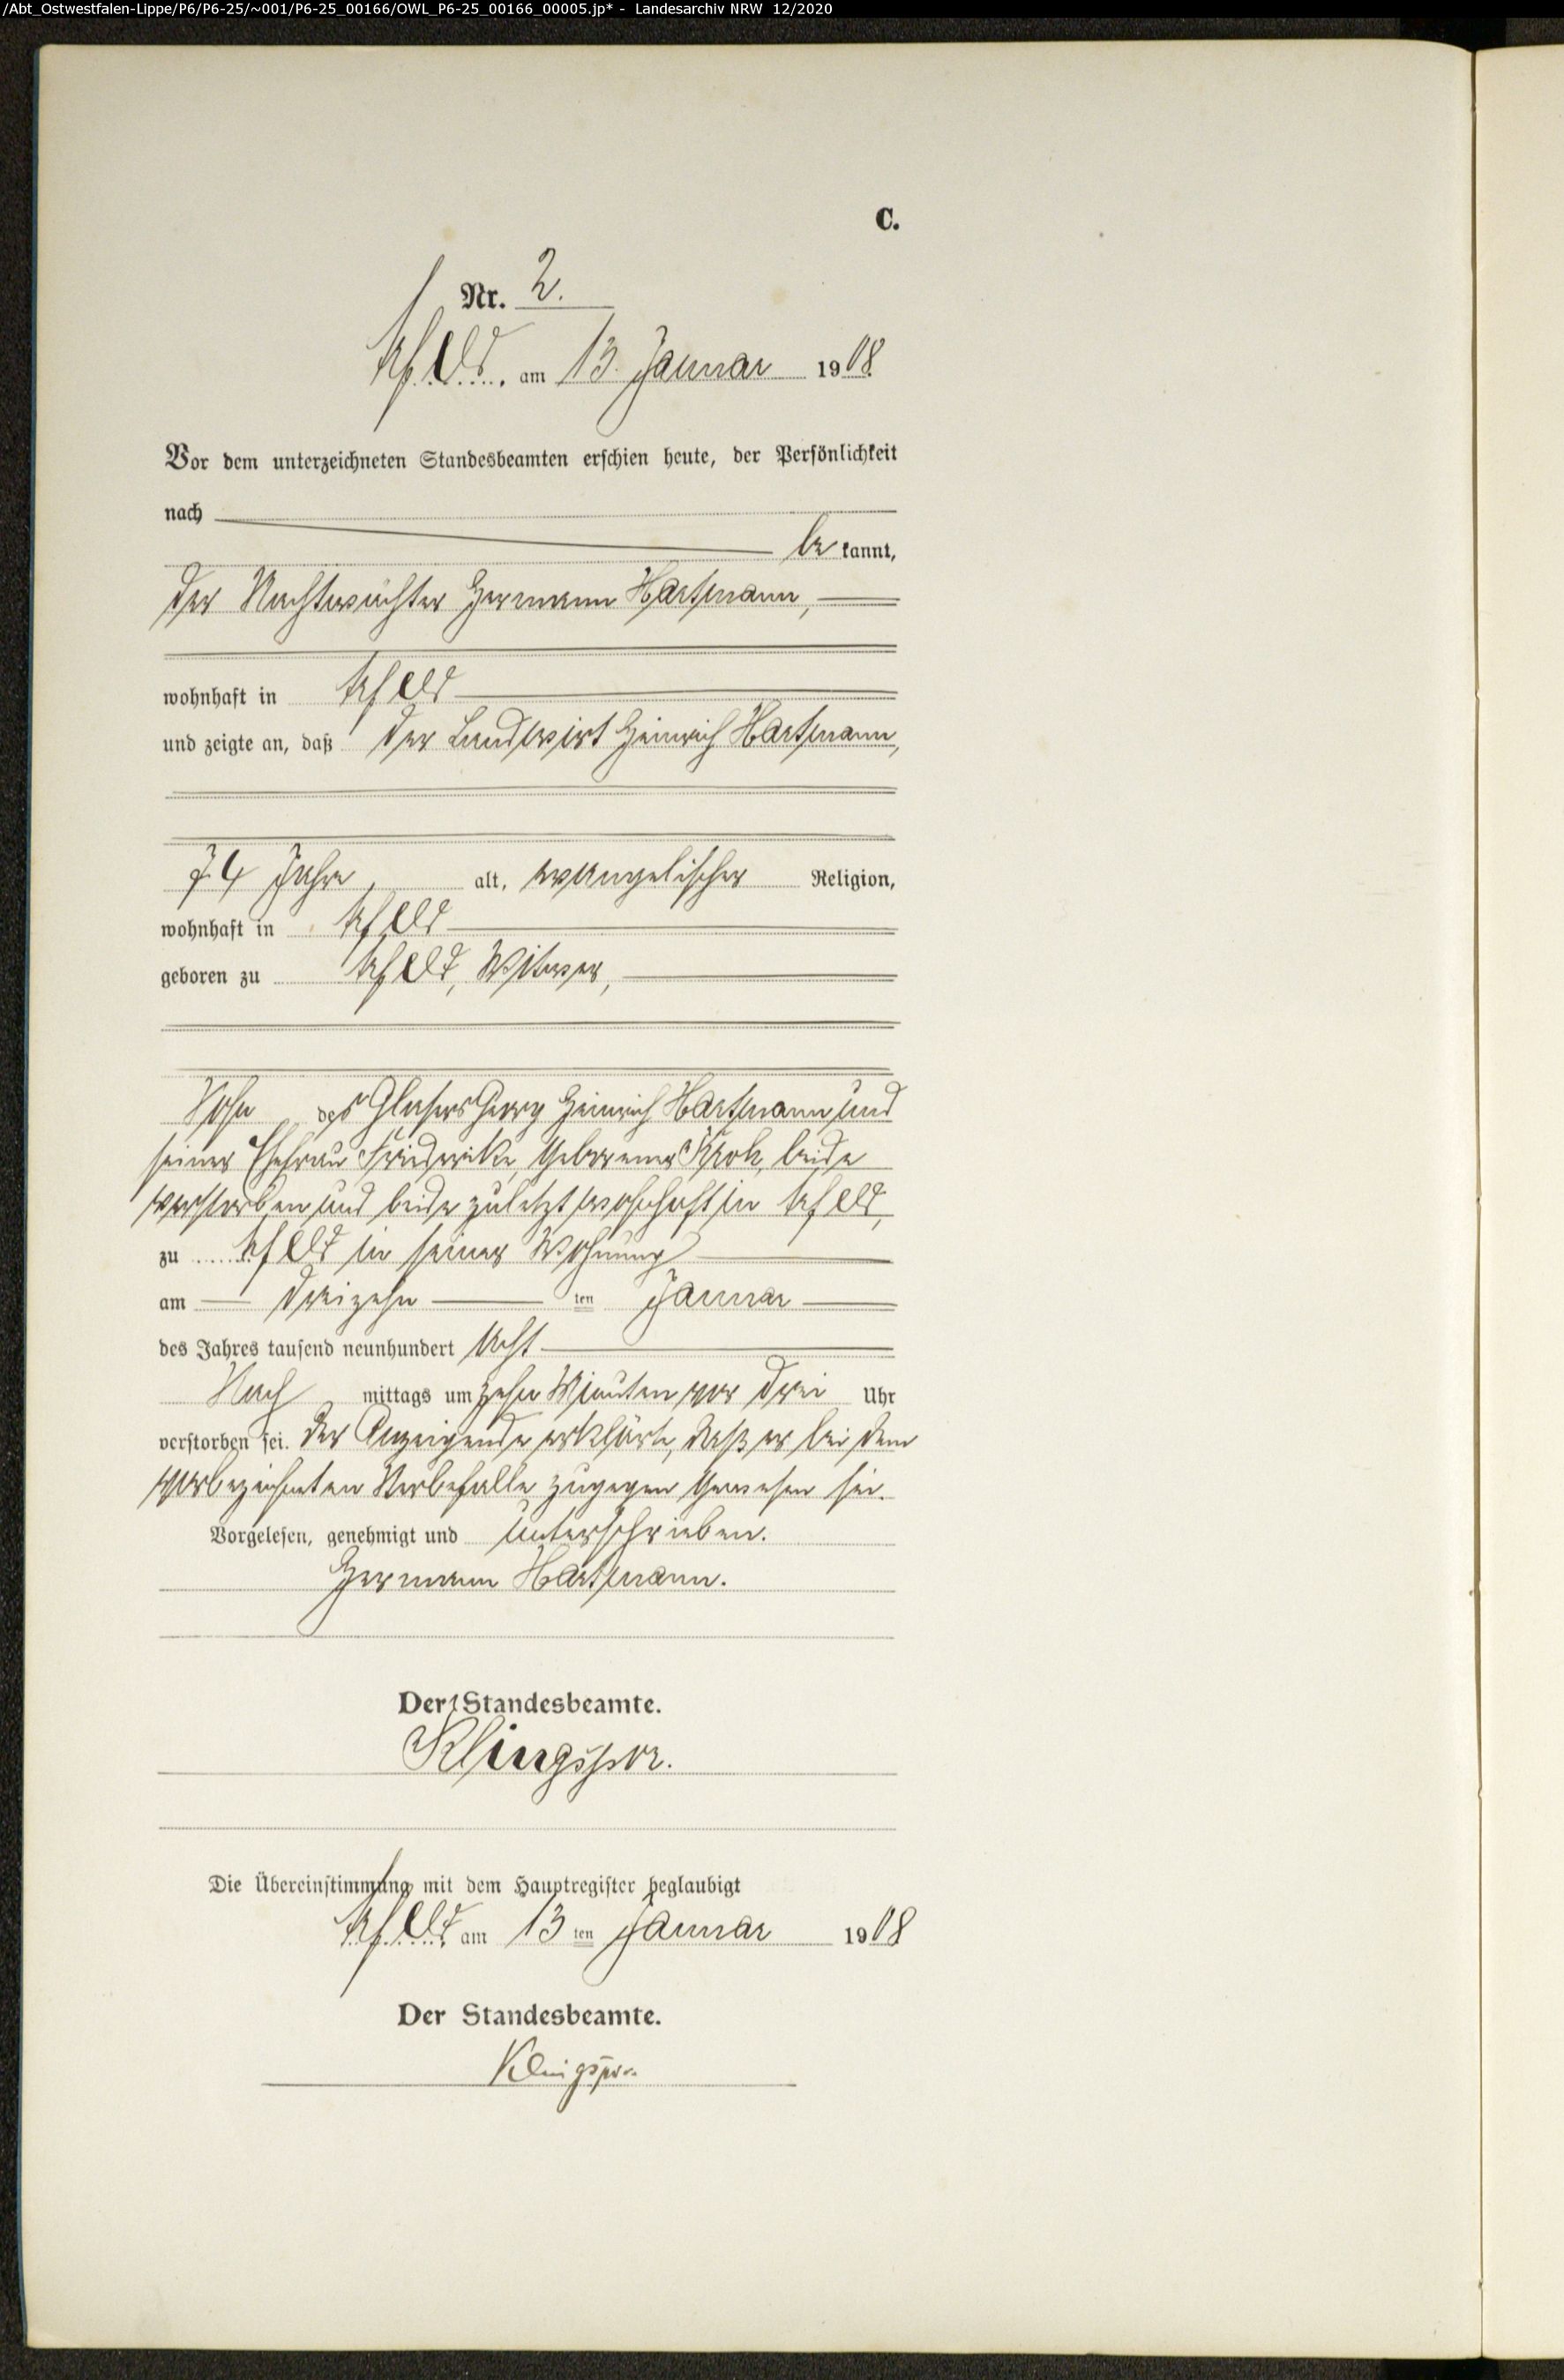 /Abt_Ostwestfalen-Lippe/P6/P6-25/~001/P6-25_00166/OWL_P6-25_00166_00005.jp* - Landesarchiv NRW 12/2020
C.
Nr. 2.
Arfeld am 13. Januar 1908
Vor dem unterzeichneten Standesbeamten erschien heute, der Persönlichkeit
nach
be kannt,
der Nachtwächter Hermann Hartmann,
wohnhaft in Arfeld
und zeigte an, daß der Landwirt Heinrich Hartmann,
74 Jahre, alt, evangelischer Religion,
wohnhaft in Arfeld
geboren zu Arfeld, Witwer,
Sohn des Glasers Georg Heinrich Hartmann und
seiner Ehefrau Friederike, geborener Kroh, beide
verstorben und beide zuletzt wohnhaft in Arfeld,
zu Arfeld in seiner Wohnung
am dreizehn ten Januar
des Jahres tausend neunhundert acht
Nach mittags um zehn Minuten vor drei Uhr
verstorben sei. Der Anzeigende erklärte, daß er bei dem
vorbezeichneten Sterbefalle zugegen gewesen sei.
Vorgelesen, genehmigt und unterschrieben.
Hermann Hartmann.
Der Standesbeamte.
Klingspor.
Die Übereinstimmung mit dem Hauptregister beglaubigt
Arfeld am 13 ten Januar 1908
Der Standesbeamte.
Klingspor